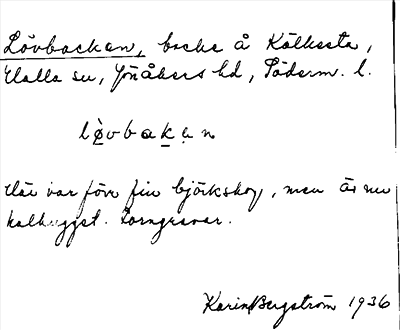 Lövbackan, backe å Kälkesta,
Halla sn, Jönåkers hd, Söderm. l.
lø̀vbakạn
Här var förr fin björkskog, men är nu
kalhuggst. Torngravar.
Karin Bergström 1936